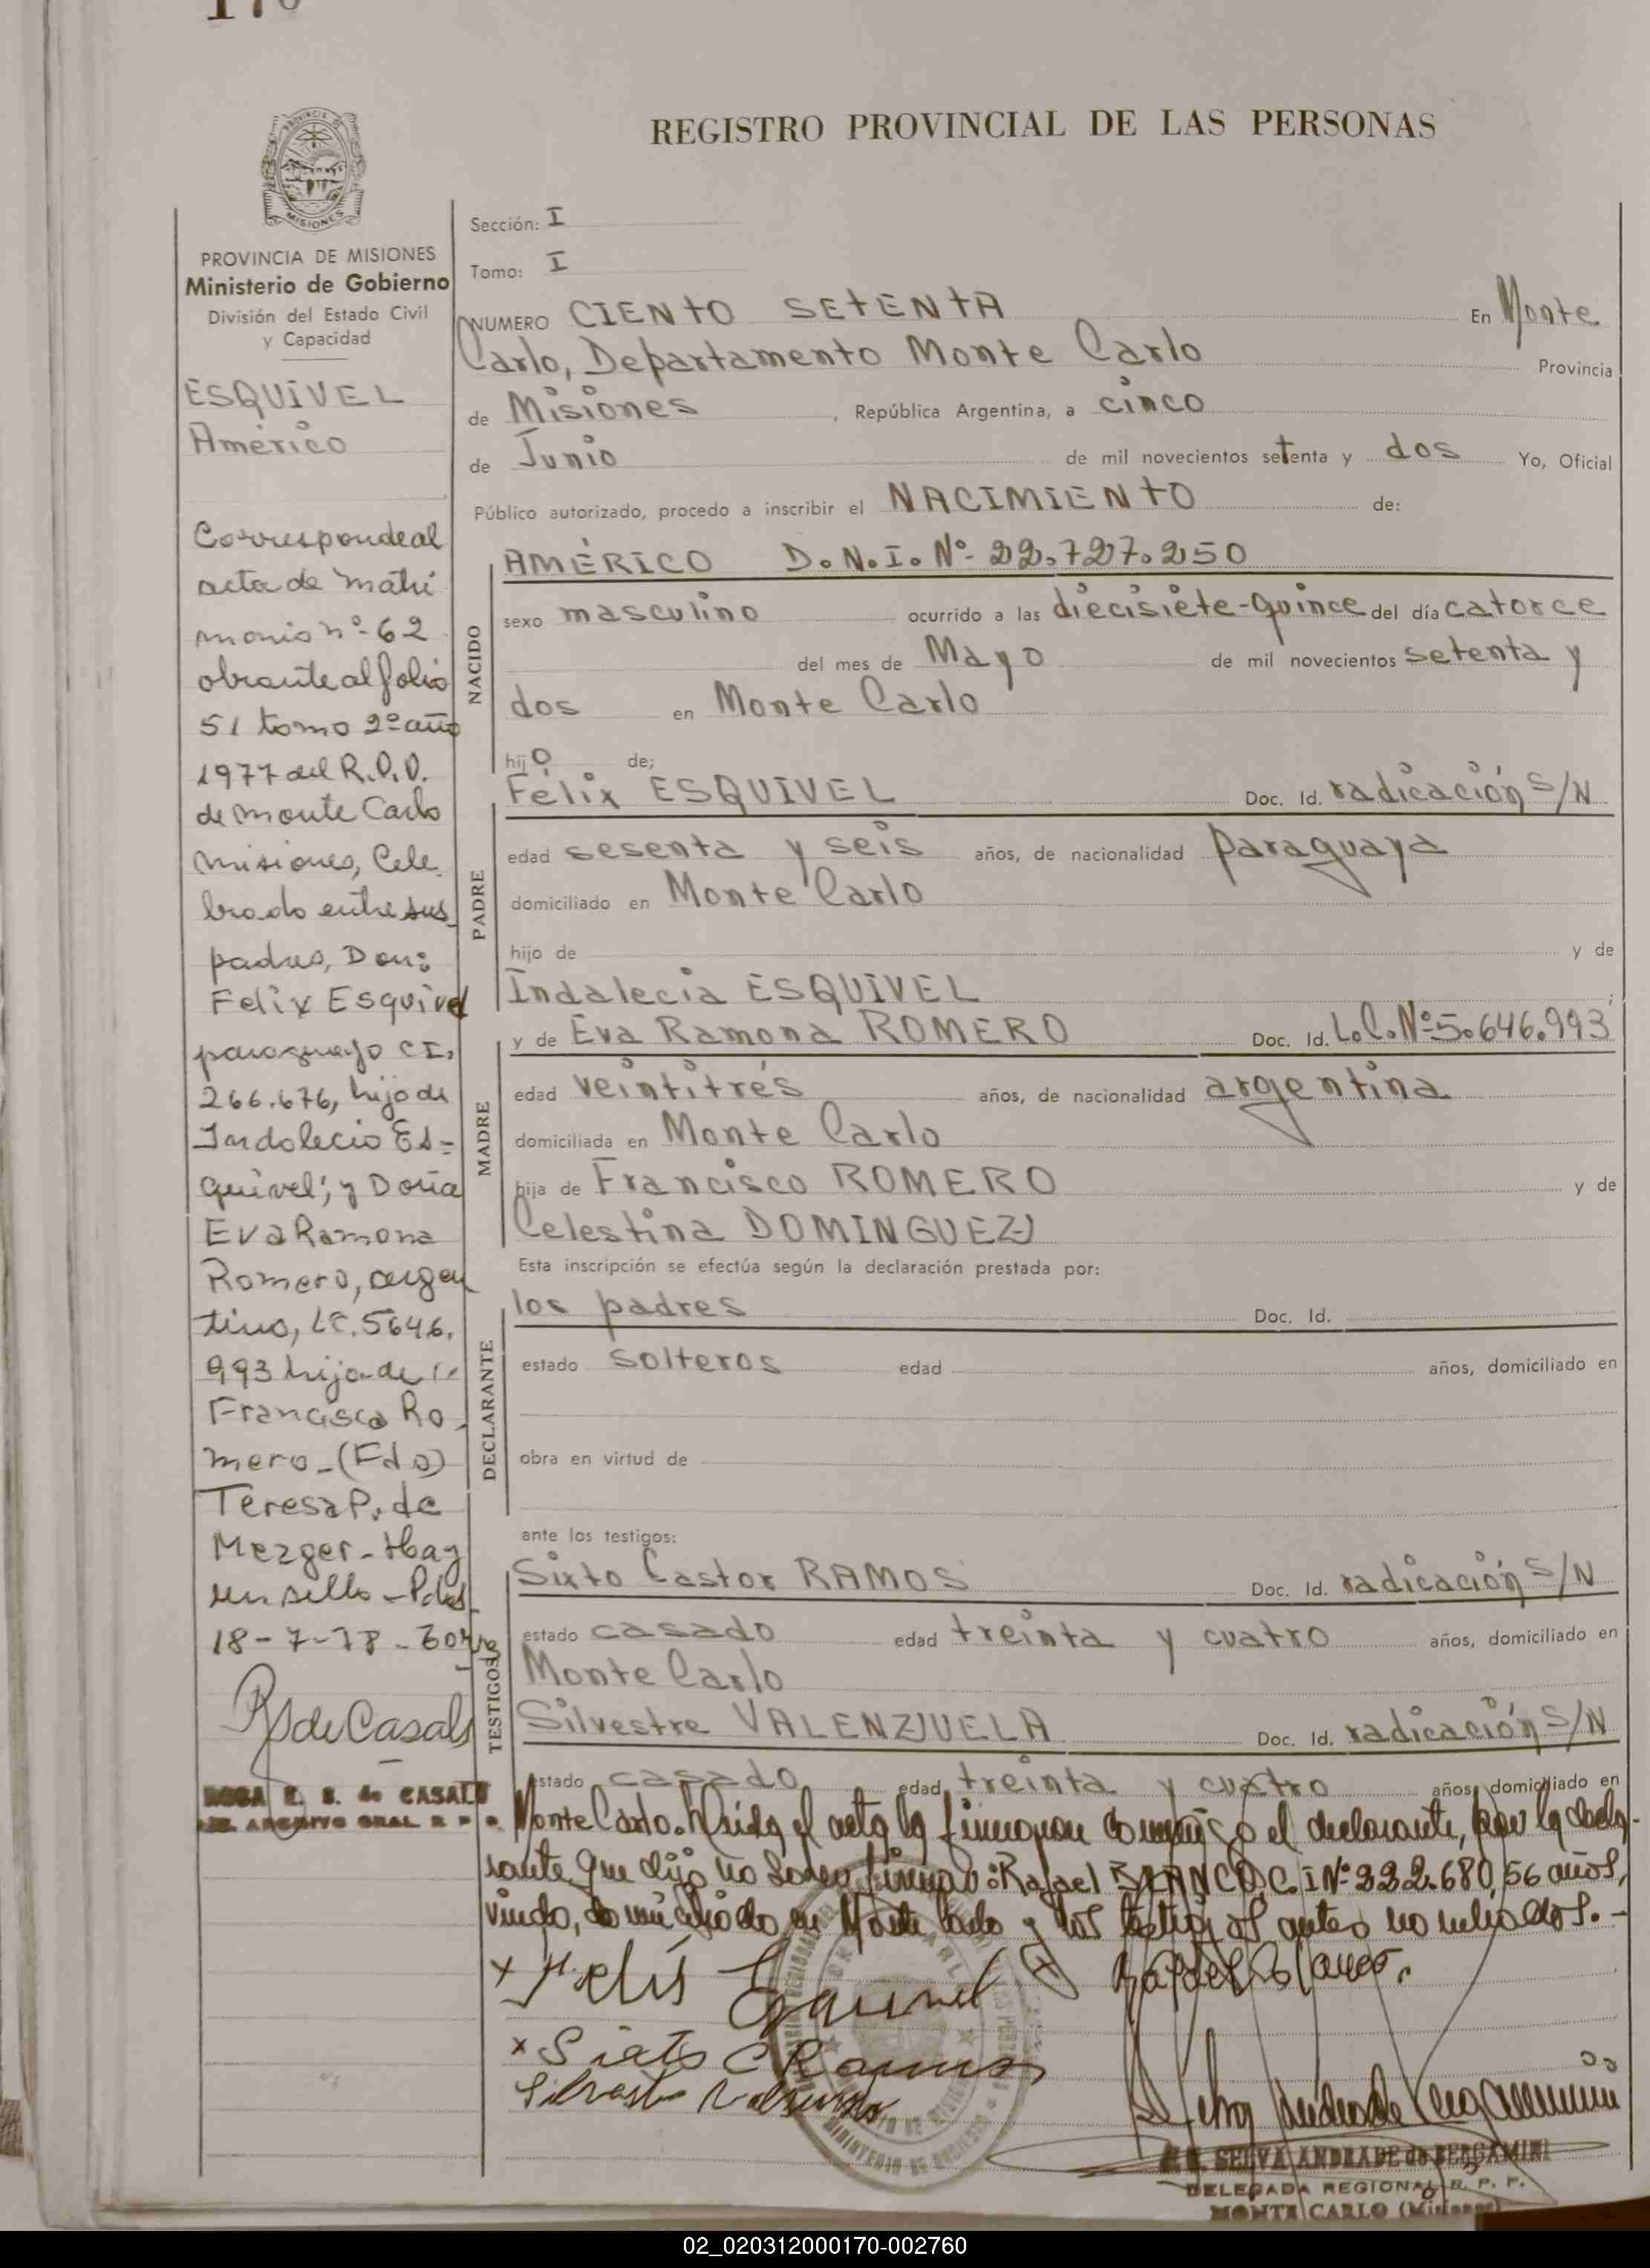 170
REGISTRO PROVINCIAL DE LAS PERSONAS
PROVINCIA DE MISIONES
Ministerio de Gobierno
División del Estado Civil
y Capacidad
ESQUIVEL
Américo
Corresponde al
acta de matri
monio nº 62
obrante al folio
51 tomo 2º año
1977 del R.P.P.
de Monte Carlo
Misiones, Cele
brado entre sus
padres, Don:
Felix Esquivel
paraguayo CI.
266.676, hijo de
Indalecio Es=
quivel; y Doña
Eva Ramona
Romero, argen
tina, LC. 5646.
993 hija de
Francisca Ro
mero_(Fdo)
Teresa P. de
Mezger - Hay
un sello - Pdas
18-7-78
RSdeCasals
ROSA E. S. de CASALS
ARCHIVO GRAL R P P
Sección: I
Tomo: I
NUMERO CIENTO SETENTA En Monte
Carlo, Departamento Monte Carlo Provincia
de Misiones, República Argentina, a cinco
de Junio de mil novecientos setenta y dos Yo, Oficial
Público autorizado, procedo a inscribir el NACIMIENTO de:
NACIDO
AMÉRICO D.N.I. Nº 22.727.250
sexo masculino ocurrido a las diecisiete-quince del día catorce
del mes de Mayo de mil novecientos setenta y
dos en Monte Carlo
hijo de;
PADRE
Félix ESQUIVEL Doc. Id. radicación S/N
edad sesenta y seis años, de nacionalidad paraguaya
domiciliado en Monte Carlo
hijo de y de
Indalecia ESQUIVEL ;
MADRE
y de Eva Ramona ROMERO Doc. Id. L.C. Nº 5.646.993
edad veintitrés años, de nacionalidad argentina
domiciliada en Monte Carlo
hija de Francisco ROMERO y de
Celestina DOMINGUEZ
Esta inscripción se efectúa según la declaración prestada por:
DECLARANTE
los padres Doc. Id.
estado solteros edad años, domiciliado en
obra en virtud de
ante los testigos:
TESTIGOS
Sixto Castor RAMOS Doc. Id. radicación S/N
estado casado edad treinta y cuatro años, domiciliado en
Monte Carlo
Silvestre VALENZUELA Doc. Id. radicación S/N
estado casado edad treinta y cuatro años, domiciliado en
Monte Carlo. Leída el acta la firmaron conmigo el declarante, por la decla-
rante que dijo no saber firmar: Rafael BLANCO C.I Nº 222.680, 56 años,
viudo, domiciliado en Monte Carlo y los testigos antes nombrados.-
x Felis Esquivel Rafael Blanco.
x Sixto C Ramos
Silvestre Valenzuela
SELVA ANDRADE de BERGAMINI
DELEGADA REGIONAL R. P. P.
MONTE CARLO (Misiones)
02_020312000170-002760